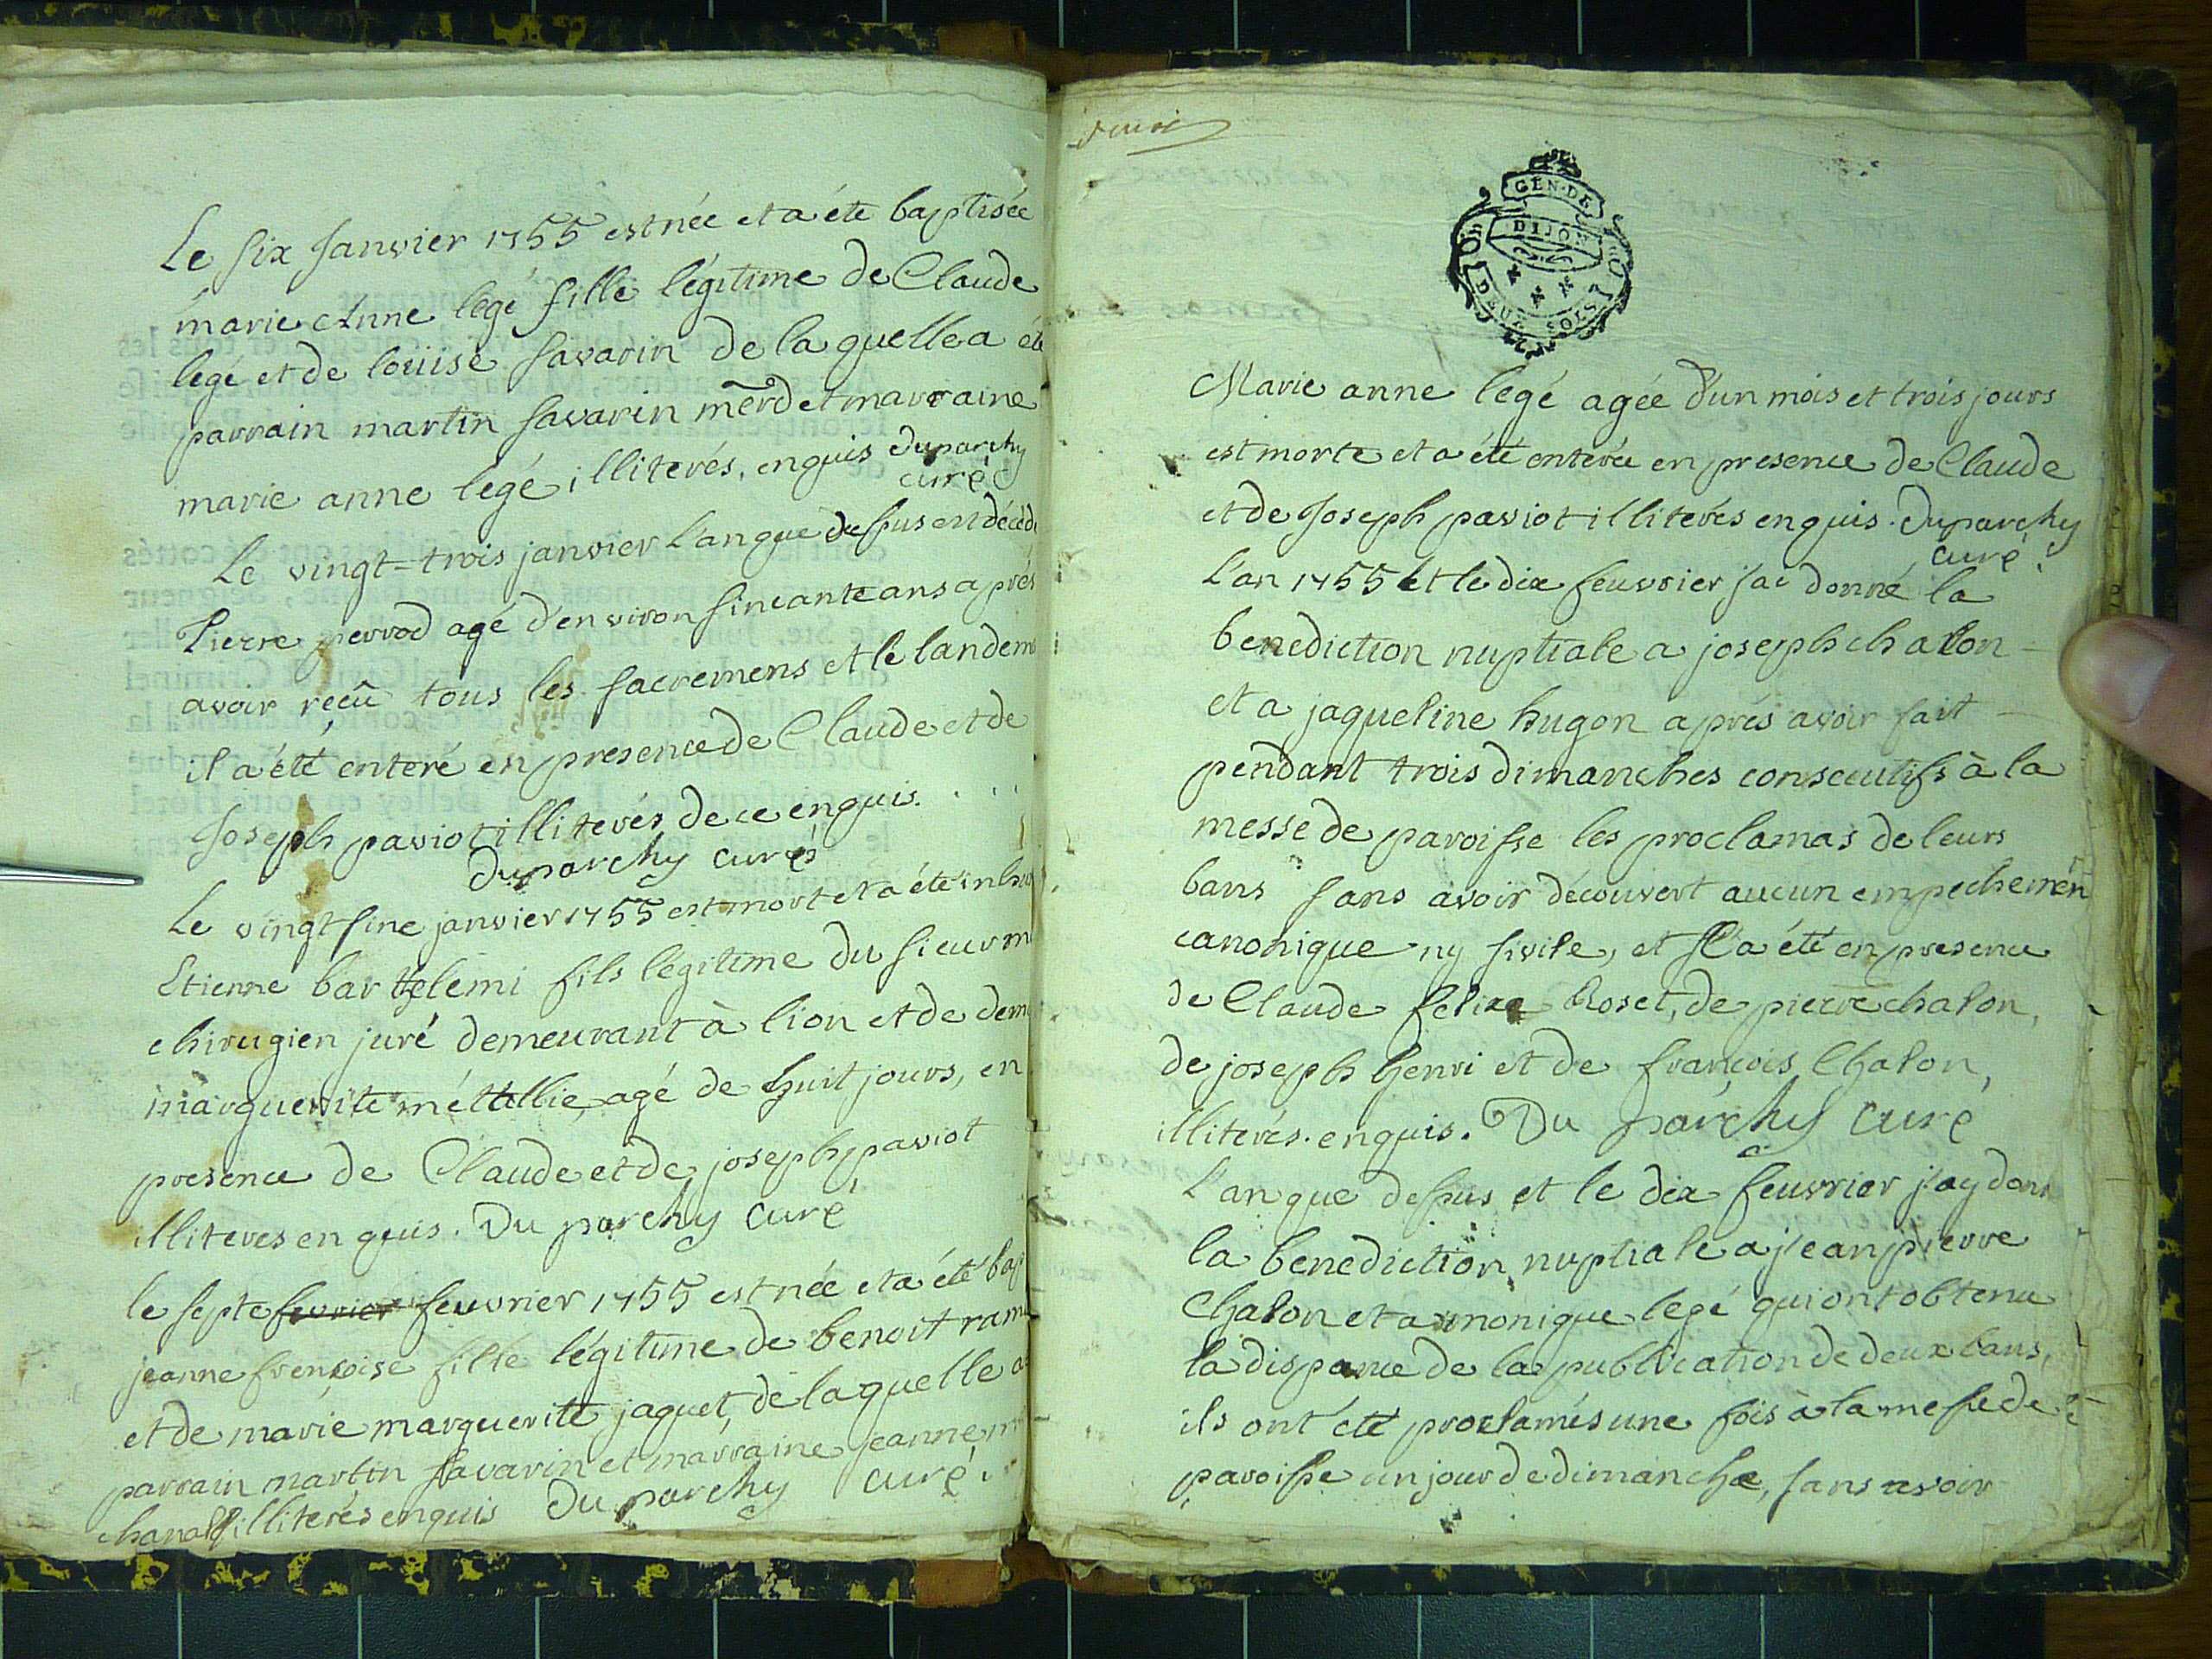 Le six Janvier 1755 est née et a été baptisée
marie Anne legé fille légitime de Claude
legé et de loüise savarin de la quelle a été
parrain martin savarin et marraine
marie anne legé illiterés, enquis duparchy
curé
Le vingt-trois janvier l'an que dessus est décéd
Pierre perrod agé d'environ sincante ans aprés
avoir reçû tous les sacremens et le landem
il a été enteré en presence de Claude et de
Joseph paviot illiterés de ce enquis. . . .
Duparchy curé
Le vingt sinc janvier 1755 est mort et a été inhu
Etienne barthelemi fils légitime du sieur m
chirugien juré demeurant à lion et de dem
marguerite agé de huit jours, en
presence de Claude et de joseph paviot
illiteres enquis. Du parchy curé
le septe fevrier feuvrier 1755 est née et a été bap
jeanne frensoise fille légitime de benoit ram
et de marie marguerite jaquet, de laquelle a
parrain martin savarin et marraine jeanne m
illiterés enquis Du parchy curé.
GEN. DE
DIJON
DEUX SOLS
Marie anne legé agée d'un mois et trois jours
est morte et a été enterée en presence de Claude
et de Joseph paviot illiterés enquis. Duparchy
curé.
L'an 1755 et le dix feuvrier jai donné la
benediction nuptiale a joseph chalon
et a jaqueline hugon aprés avoir fait
pendant trois dimanches consecutifs à la
messe de paroisse les proclamas de leurs
bans sans avoir découvert aucun empechemen
canonique ny sivile, et sa été en presence
de Claude felix Roset, de pierre chalon,
de joseph henri et de françois Chalon,
illiterés. enquis. Du parchy curé
L'an que dessus et le dix feuvrier j'ay donn
la benediction nuptiale a jean pierre
Chalon et a monique legé qui ont obtenu
la dispance de la publication de deux bans,
ils ont été proclamés une fois à la messe de
paroisse un jour de dimanche, sans avoir